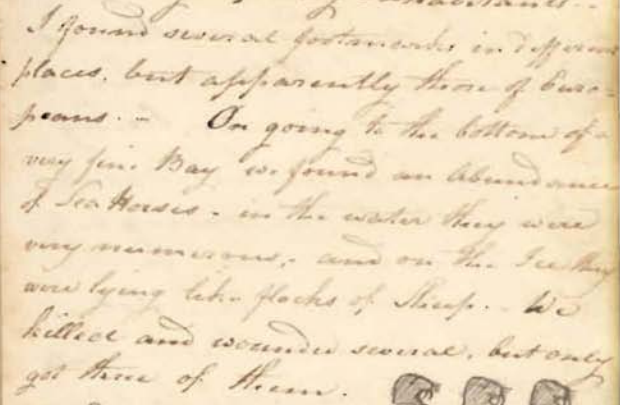 of Inhabitants. -
I found several footmarks in different
places, but apparently those of Euro-
peans. - On going to the bottom of a
very fine Bay we found an abundance
of Sea Horses. in the water they were
very numerous, and on the Ice they
were lying like flocks of Sheep. We
killed and wounded several, but only
got three of them.